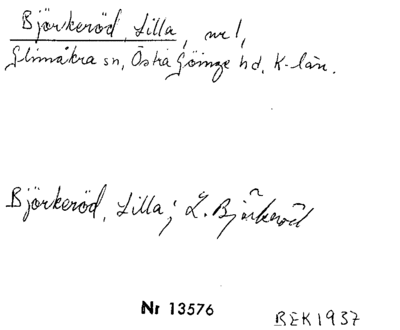 Björkeröd, Lilla, nr 1,
Glimåkra sn, Östra Göinge hd, K-län.
Björkeröd, Lilla; L. Björkeröd
Nr 13576
BEK 1937